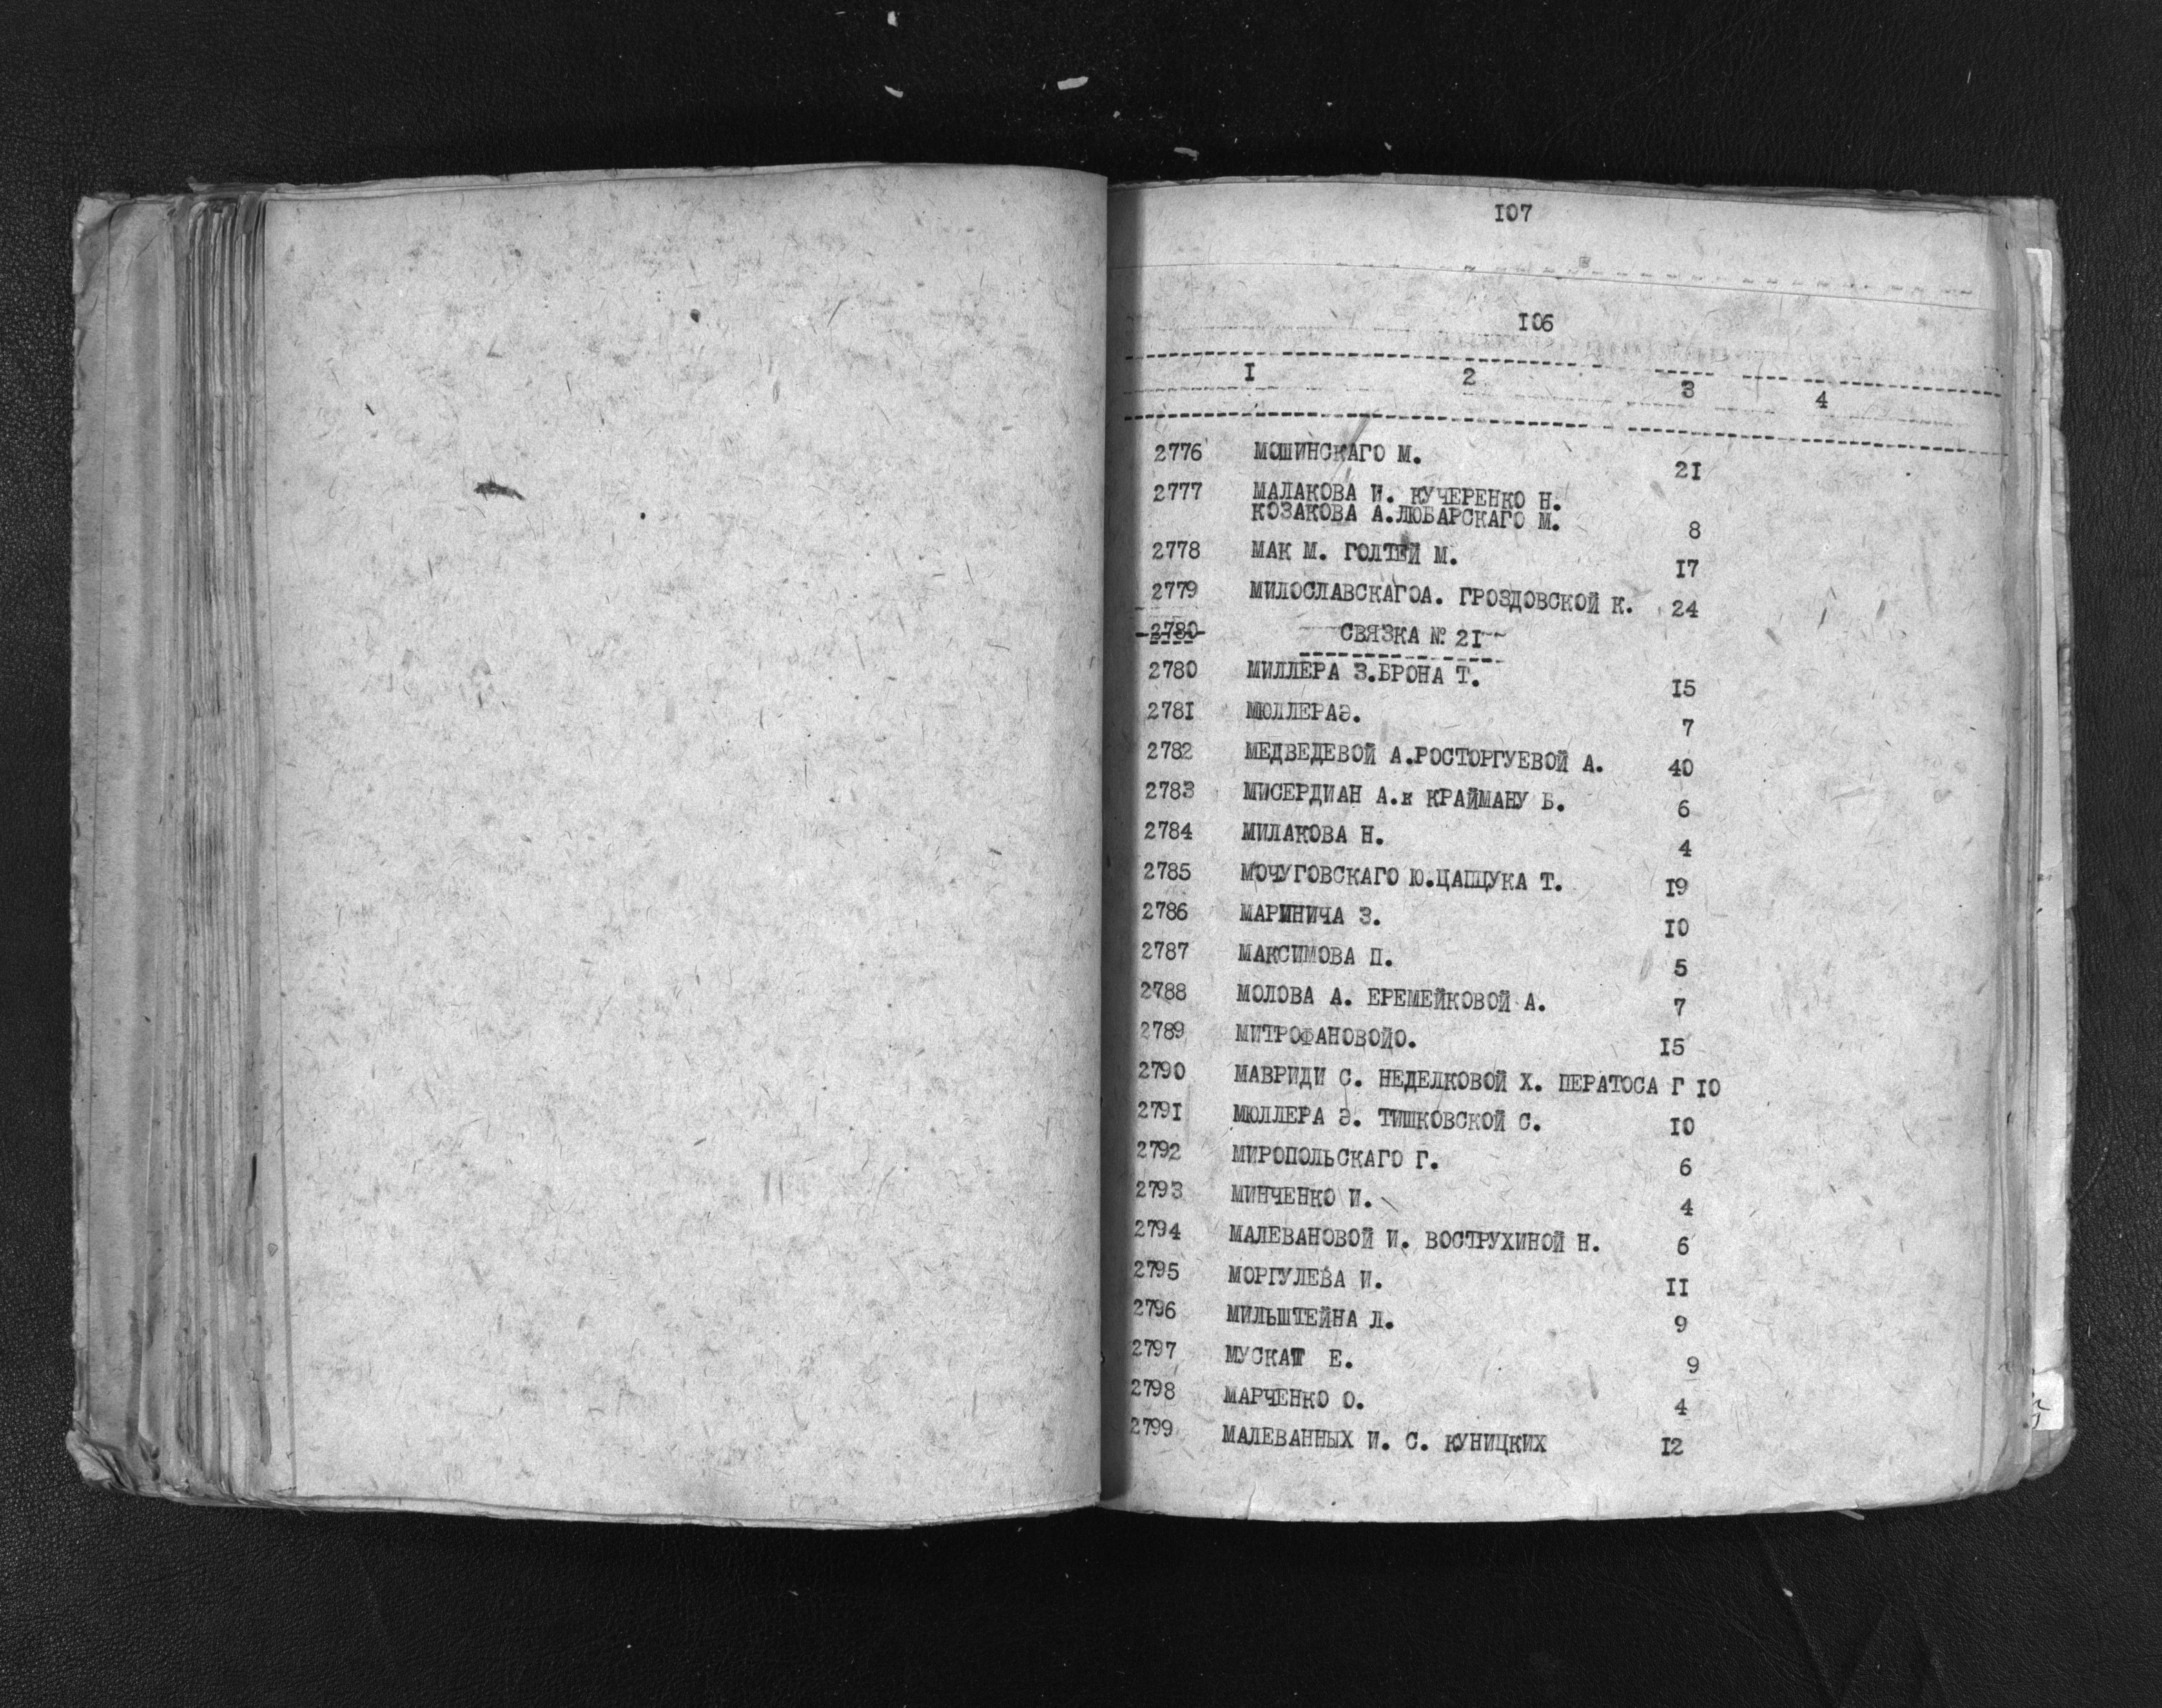 107
106
I 2 3 4
2776 МОШИНСКАГО М. 21
2777 МАЛАКОВА И. КУЧЕРЕНКО Н.
КОЗАКОВА А.ЛЮБАРСКАГО М. 8
2778 МАК М. ГОЛТЕЙ М. 17
2779 МИЛОСЛАВСКАГОА. ГРОЗДОВСКОЙ К. 24
2780 СВЯЗКА № 21
2780 МИЛЛЕРА З.БРОНА Т. 15
2781 МЮЛЛЕРАЭ. 7
2782 МЕДВЕДЕВОЙ А.РОСТОРГУЕВОЙ А. 40
2783 МИСЕРДИАН А.к КРАЙМАНУ Б. 6
2784 МИЛАКОВА Н. 4
2785 МОЧУГОВСКАГО Ю.ЦАПЦУКА Т. 19
2786 МАРИНИЧА З. 10
2787 МАКСИМОВА П. 5
2788 МОЛОВА А. ЕРЕМЕЙКОВОЙ А. 7
2789 МИТРОФАНОВОЙО. 15
2790 МАВРИДИ С. НЕДЕЛКОВОЙ Х. ПЕРАТОСА Г 10
2791 МЮЛЛЕРА Э. ТИШКОВСКОЙ С. 10
2792 МИРОПОЛЬСКАГО Г. 6
2793 МИНЧЕНКО И. 4
2794 МАЛЕВАНОВОЙ И. ВОСТРУХИНОЙ Н. 6
2795 МОРГУЛЕВА И. 11
2796 МИЛЬШТЕЙНА Л. 9
2797 МУСКАТ Е. 9
2798 МАРЧЕНКО О. 4
2799 МАЛЕВАННЫХ И. С. КУНИЦКИХ 12